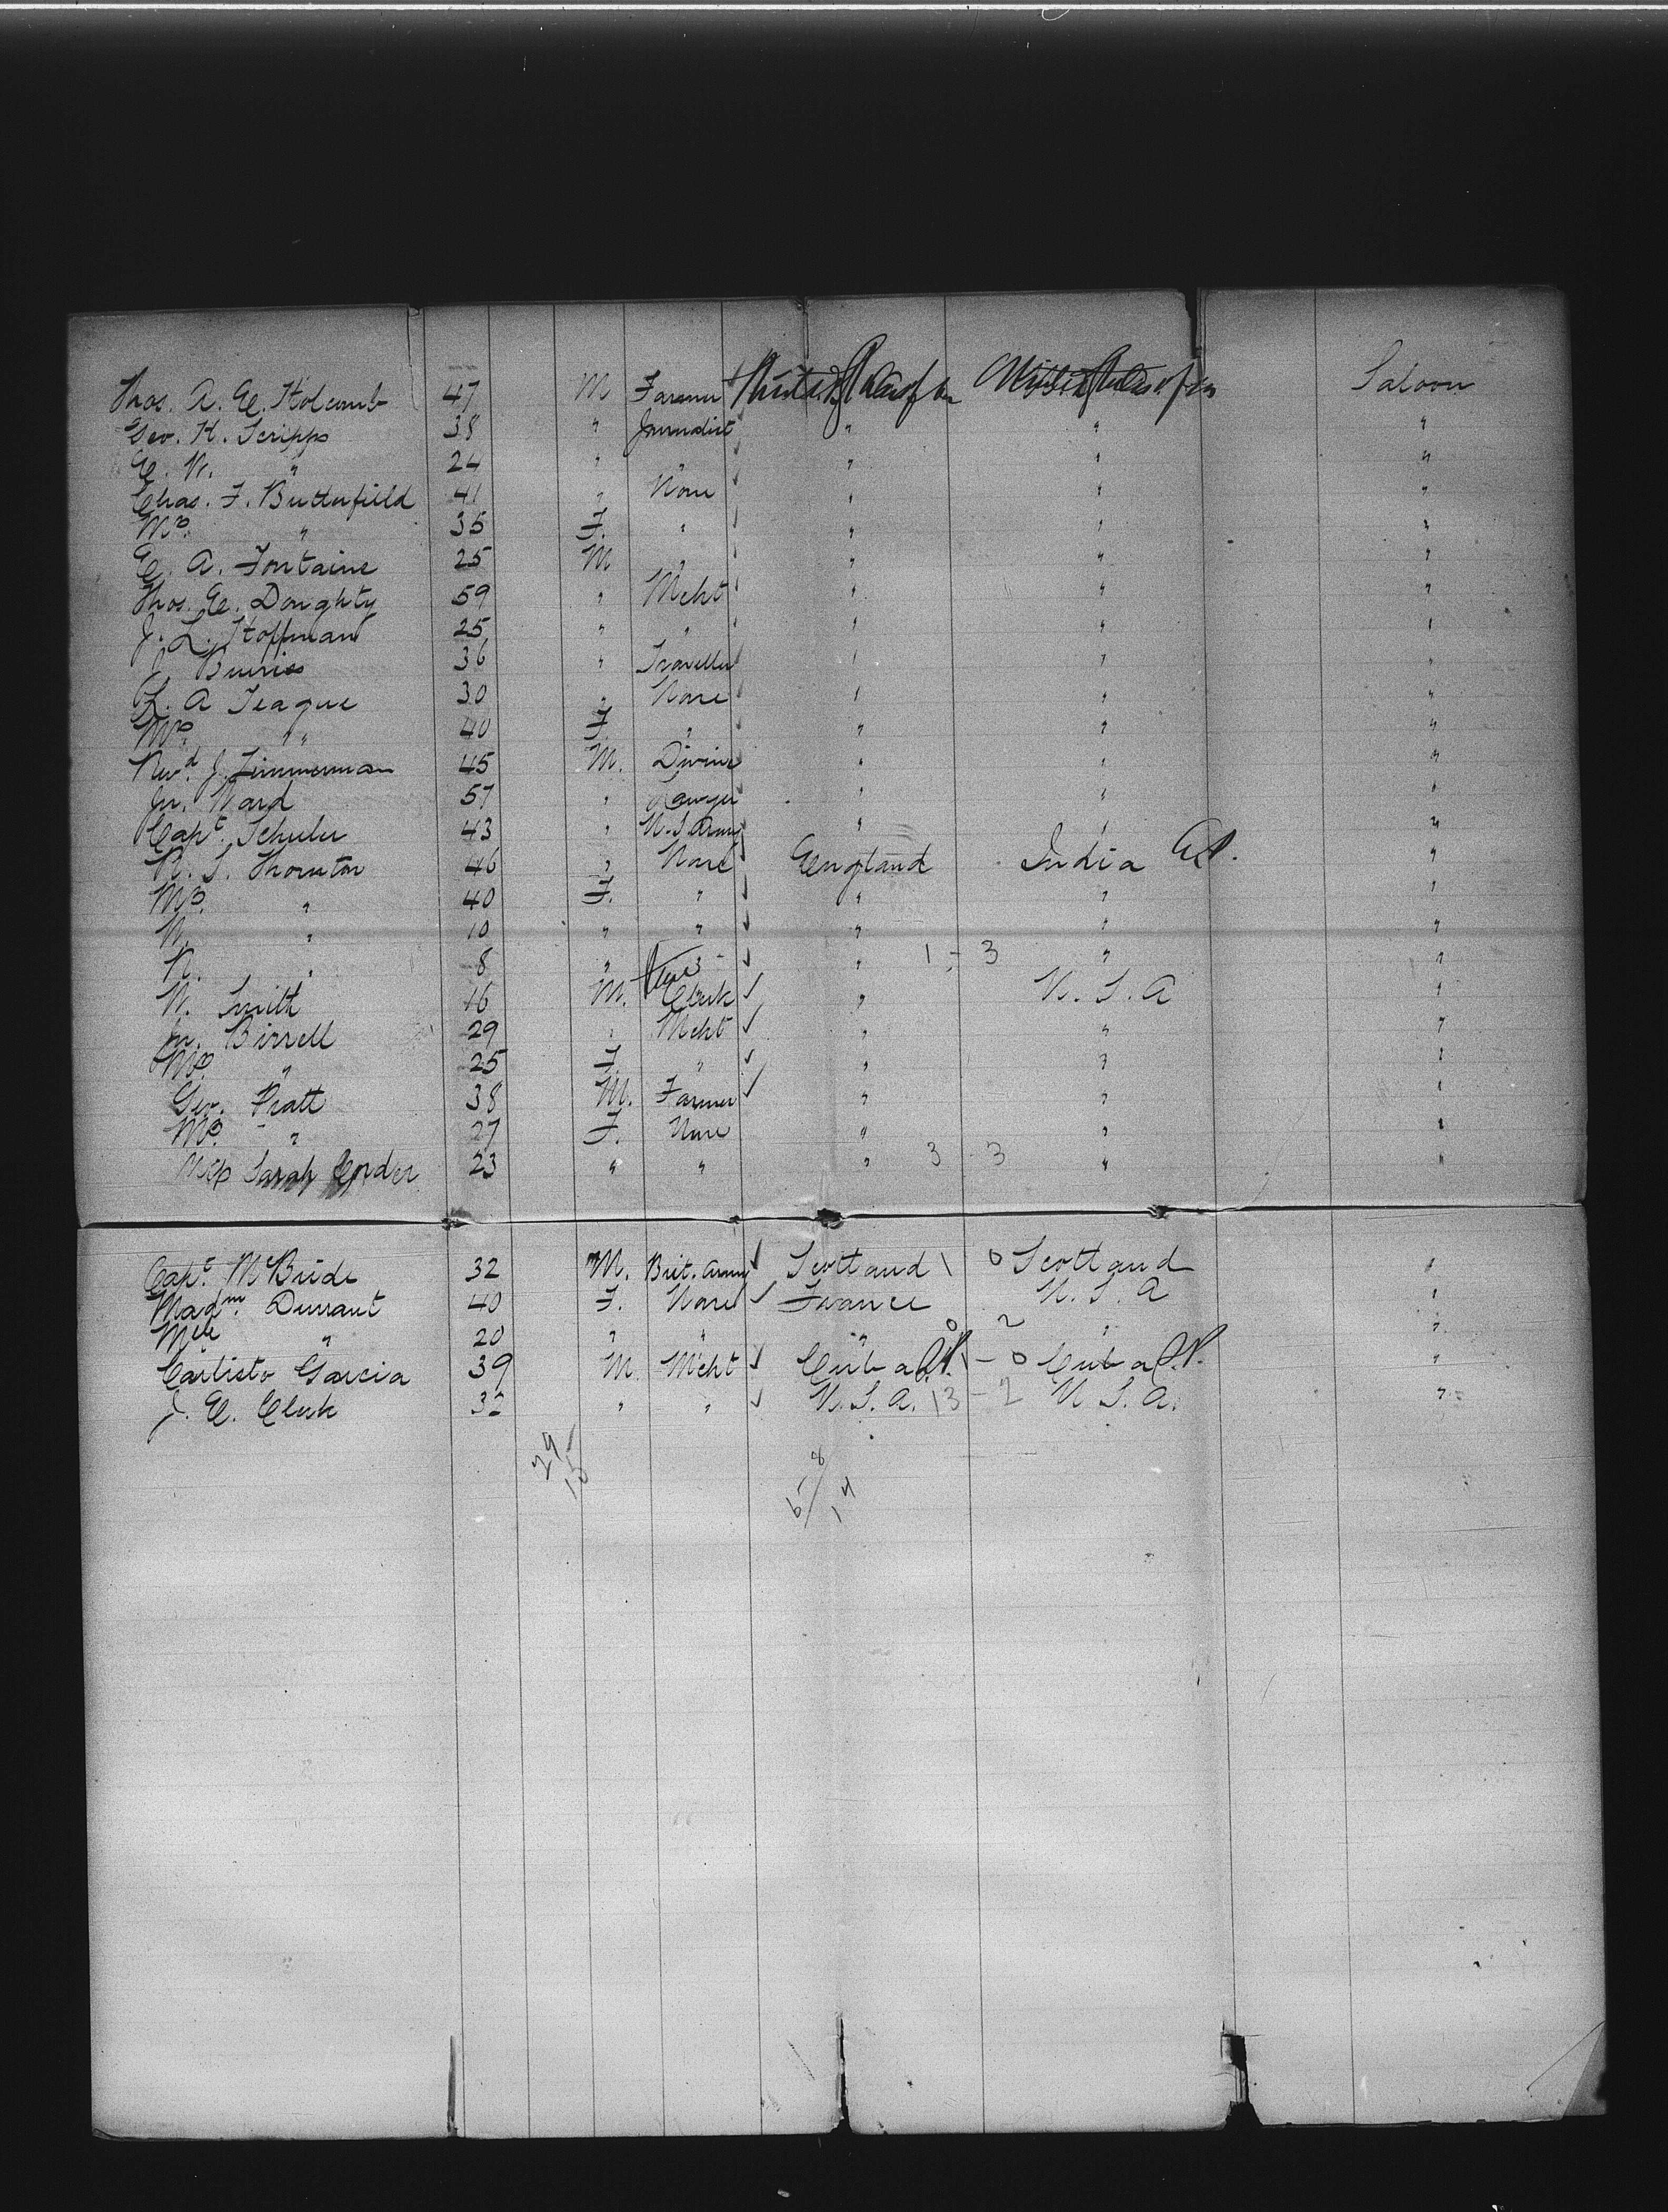 Thos. A. E. Holcomb 47 M Farmer United States of Am United States of Am Saloon
Geo. H. Scripps 38 " Journalist " " "
E. W. " 24 " " " " "
Chas. F. Butterfield 41 " None " " "
Mrs. " 35 F. " " " "
E. A. Fontaine 25 M " " " "
Thos. E. Doughty 59 " Mcht " " "
J. L. Hoffman 25 " " " " "
J. 36 " Traveller " " "
L. A Teague 30 " None " " "
Mrs. " " 40 F. " " " "
Revd. J. Zimmerman 45 M. Divine " " "
Jn. Ward 57 " Lawyer " " "
Capt. Schuler 43 " U.S. Army " " "
R. S. Thornton 46 " None England India "
Mrs. " 40 F. " " " "
" 10 " " " " "
" 8 " " 1 - 3 " "
W. Smith 16 M. Clerk " U. S. A "
Jn. Birrell 29 " Mcht " " "
Mrs. " 25 F. " " " "
Geo. Pratt 38 M. Farmer " " "
Mrs. " 27 F. None " " "
Miss Sarah 23 " " " 3 - 3 " "
Capt. McBride 32 M. Brit. Army Scotland 1 0 Scotland "
Madm. Durrant 40 F. None France U. S. A "
Mlle " 20 " " " 0 2 " "
Carlisto Garcia 39 M. Mcht Cuba 1 - 0 Cuba "
J. E. Clerk 32 " " U. S. A. 13 - 2 U. S. A. "
29
15